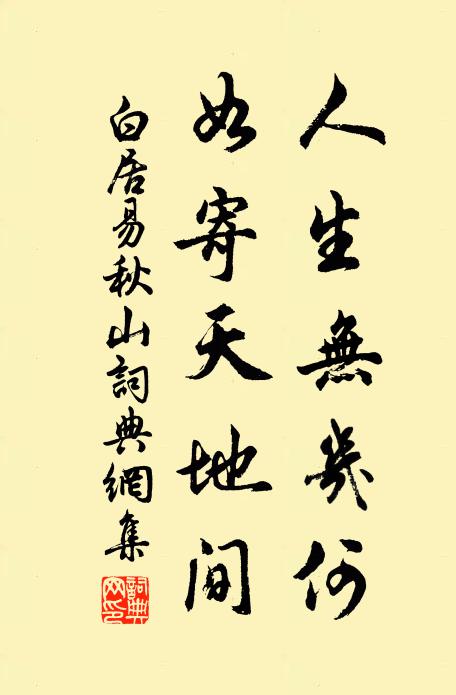 人生無幾何
如寄天地間
白居易秋山詞典網集
詞典網印